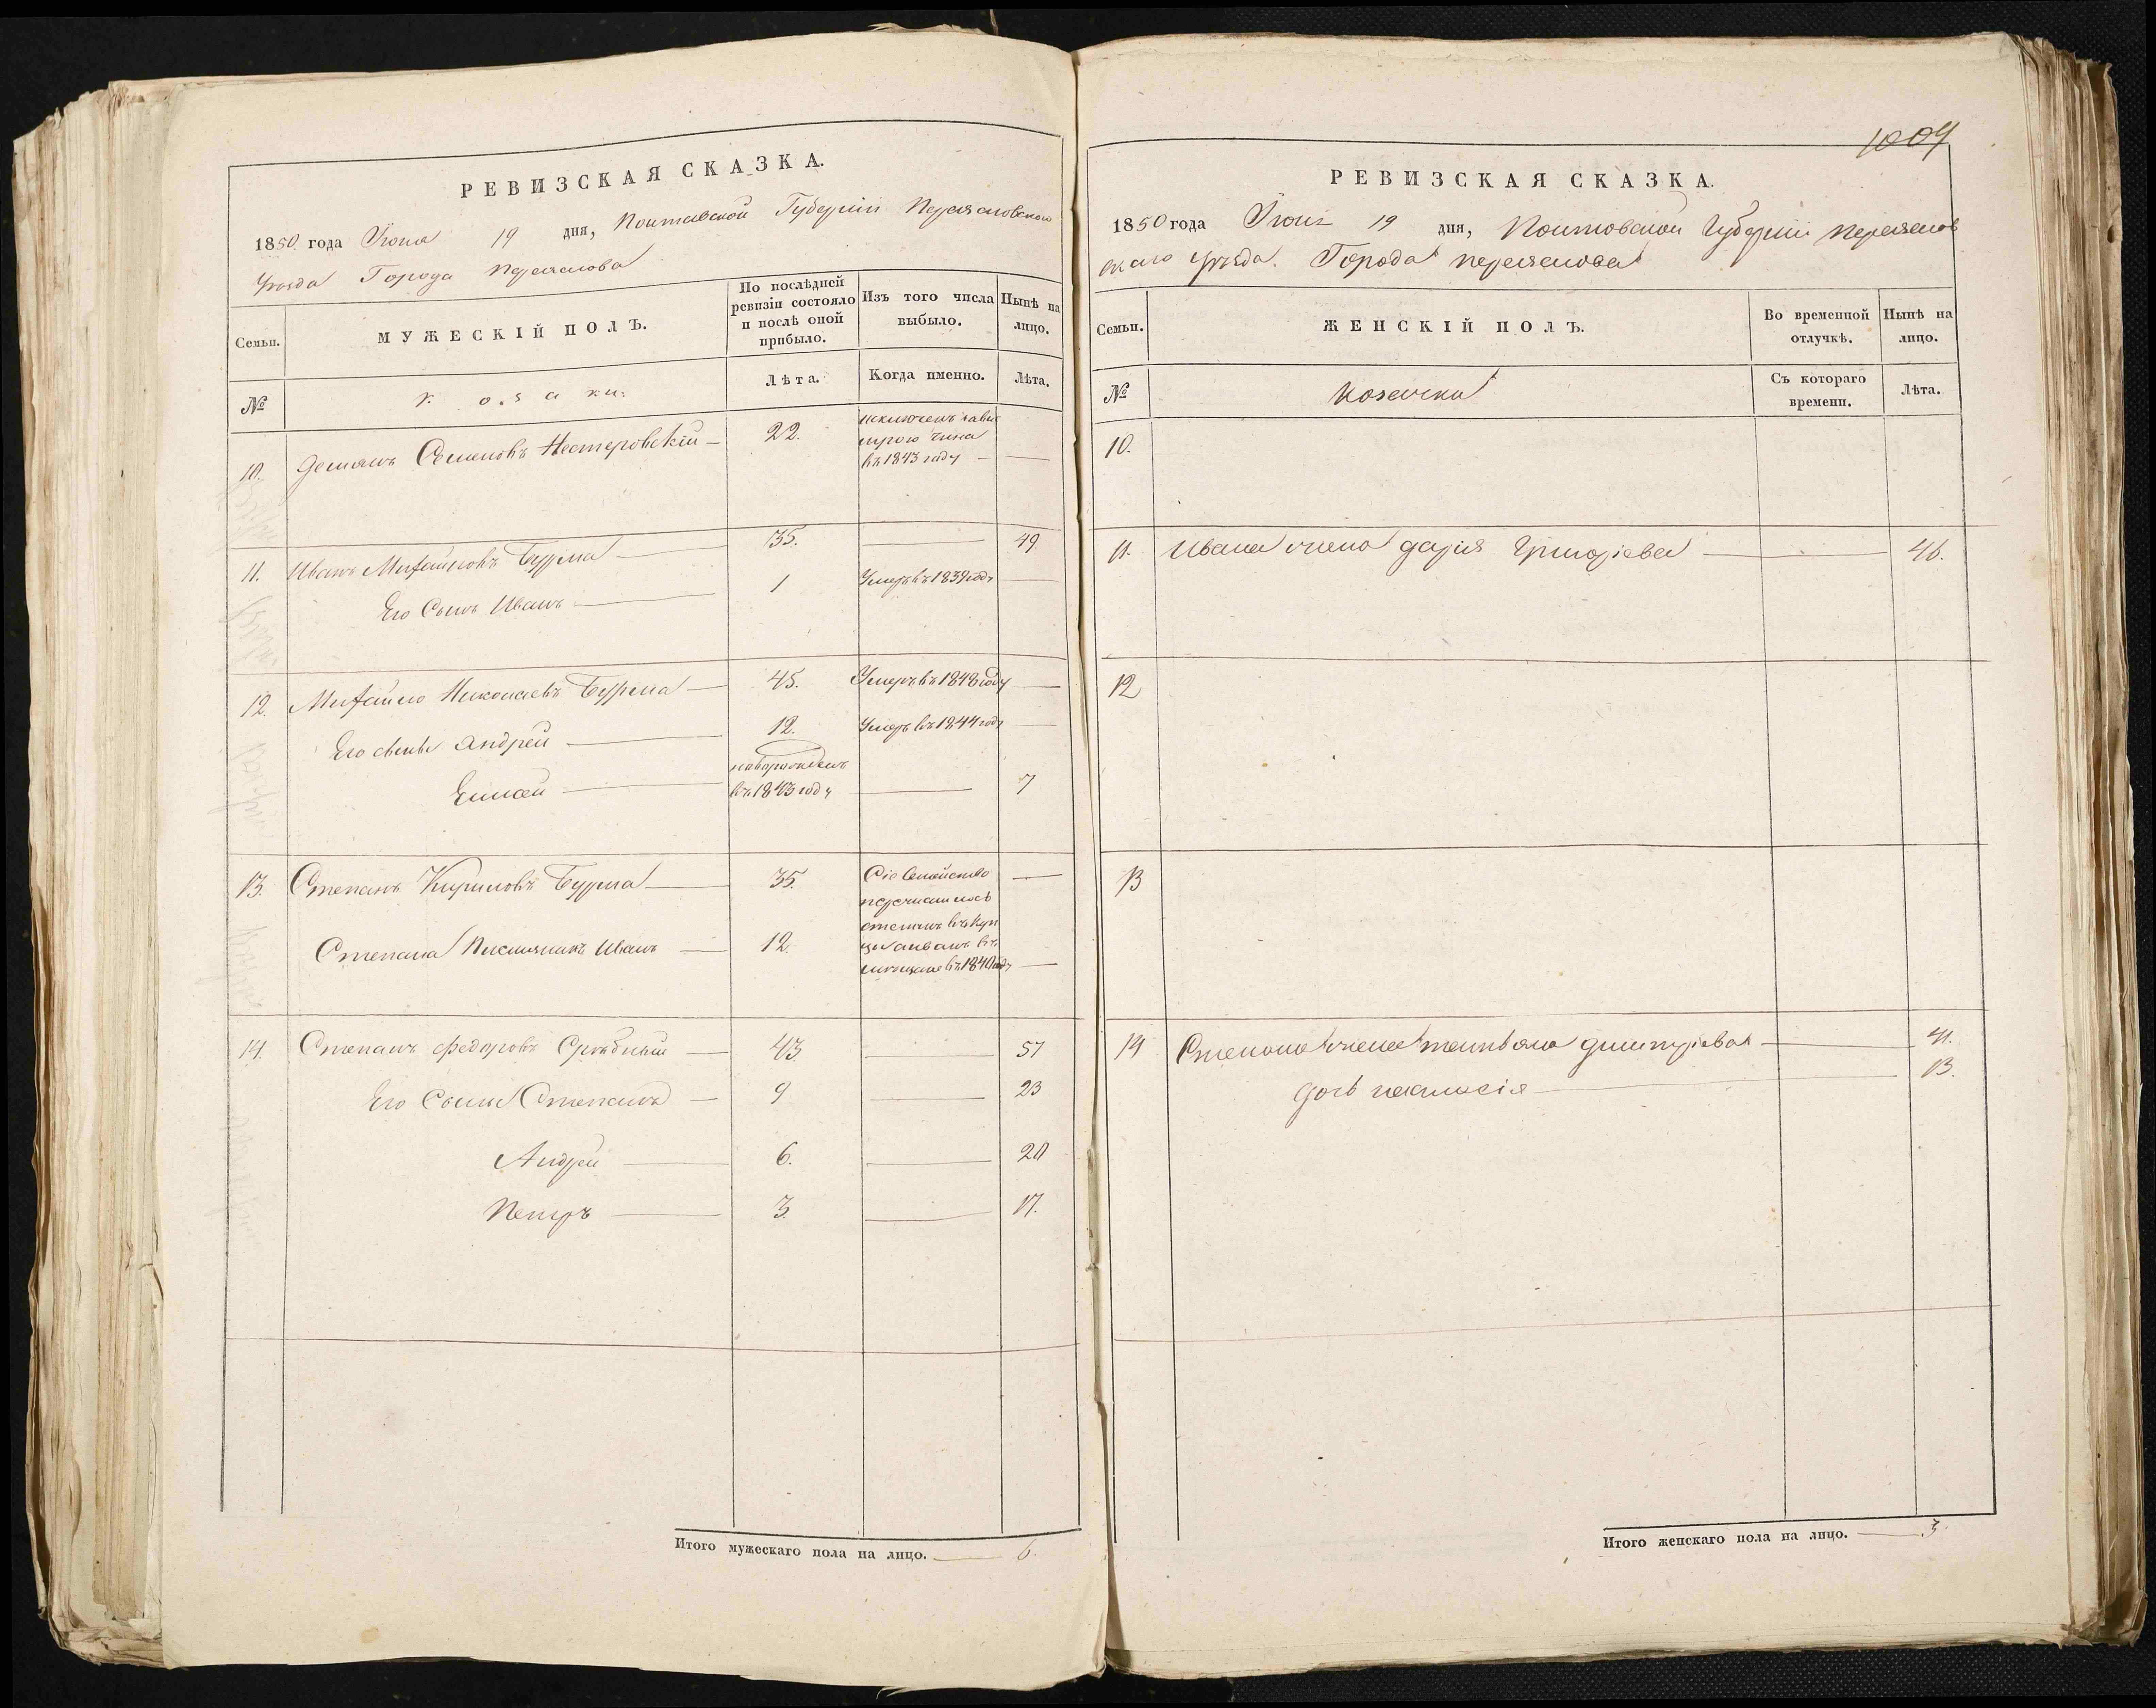 РЕВИЗСКАЯ СКАЗКА.
1850. года Июня 19 дня, Полтавской Губерніи Переясловского
Уѣзда Города Переяслова
Семьи.
МУЖЕСКІЙ ПОЛЪ.
По послѣдней ревизіи состояло и послѣ оной прибыло.
Изъ того числа выбыло.
Нынѣ на лицо.
№
козаки.
Лѣта.
Когда именно.
Лѣта.
10. Демьянъ Семеновъ Нестеровскій 22. исключенъ
чина
въ 1843 году
11. Иванъ Михайловъ Бурма 35. 49
Его Сынъ Иванъ 1 Умеръ въ 1839 году
12. Михайло Николаевъ Бурма 45. Умеръ въ 1848 году
Его сынъ Андрей 12. Умеръ въ 1844 году
новорожденъ
въ 1843 году 7
13. Степанъ Кириловъ Бурма 35. Сіе Семейство
перечислилось
степанъ въ куп
Степана Племяникъ Иванъ 12. цы аиванъ въ
мещане въ 1840 году
14. Степанъ Федоровъ Срѣбный 43 57
Его Сыны Степанъ 9 23
Андрей 6. 20
Петръ 3. 17.
Итого мужескаго пола на лицо. 6.
1004
РЕВИЗСКАЯ СКАЗКА.
1850 года Июня 19 дня, Полтовской Губерніи переяслов
скаго Уѣзда. Города переяслова
Семьи.
ЖЕНСКІЙ ПОЛЪ.
Во временной отлучкѣ.
Нынѣ на лицо.
№
козачки
Съ котораго времени.
Лѣта.
10.
11. Ивана жена дарія Григоріева 46.
12
13
14 Степана жена татьяна димитріева 41.
дочь 13.
Итого женскаго пола на лицо. 3.